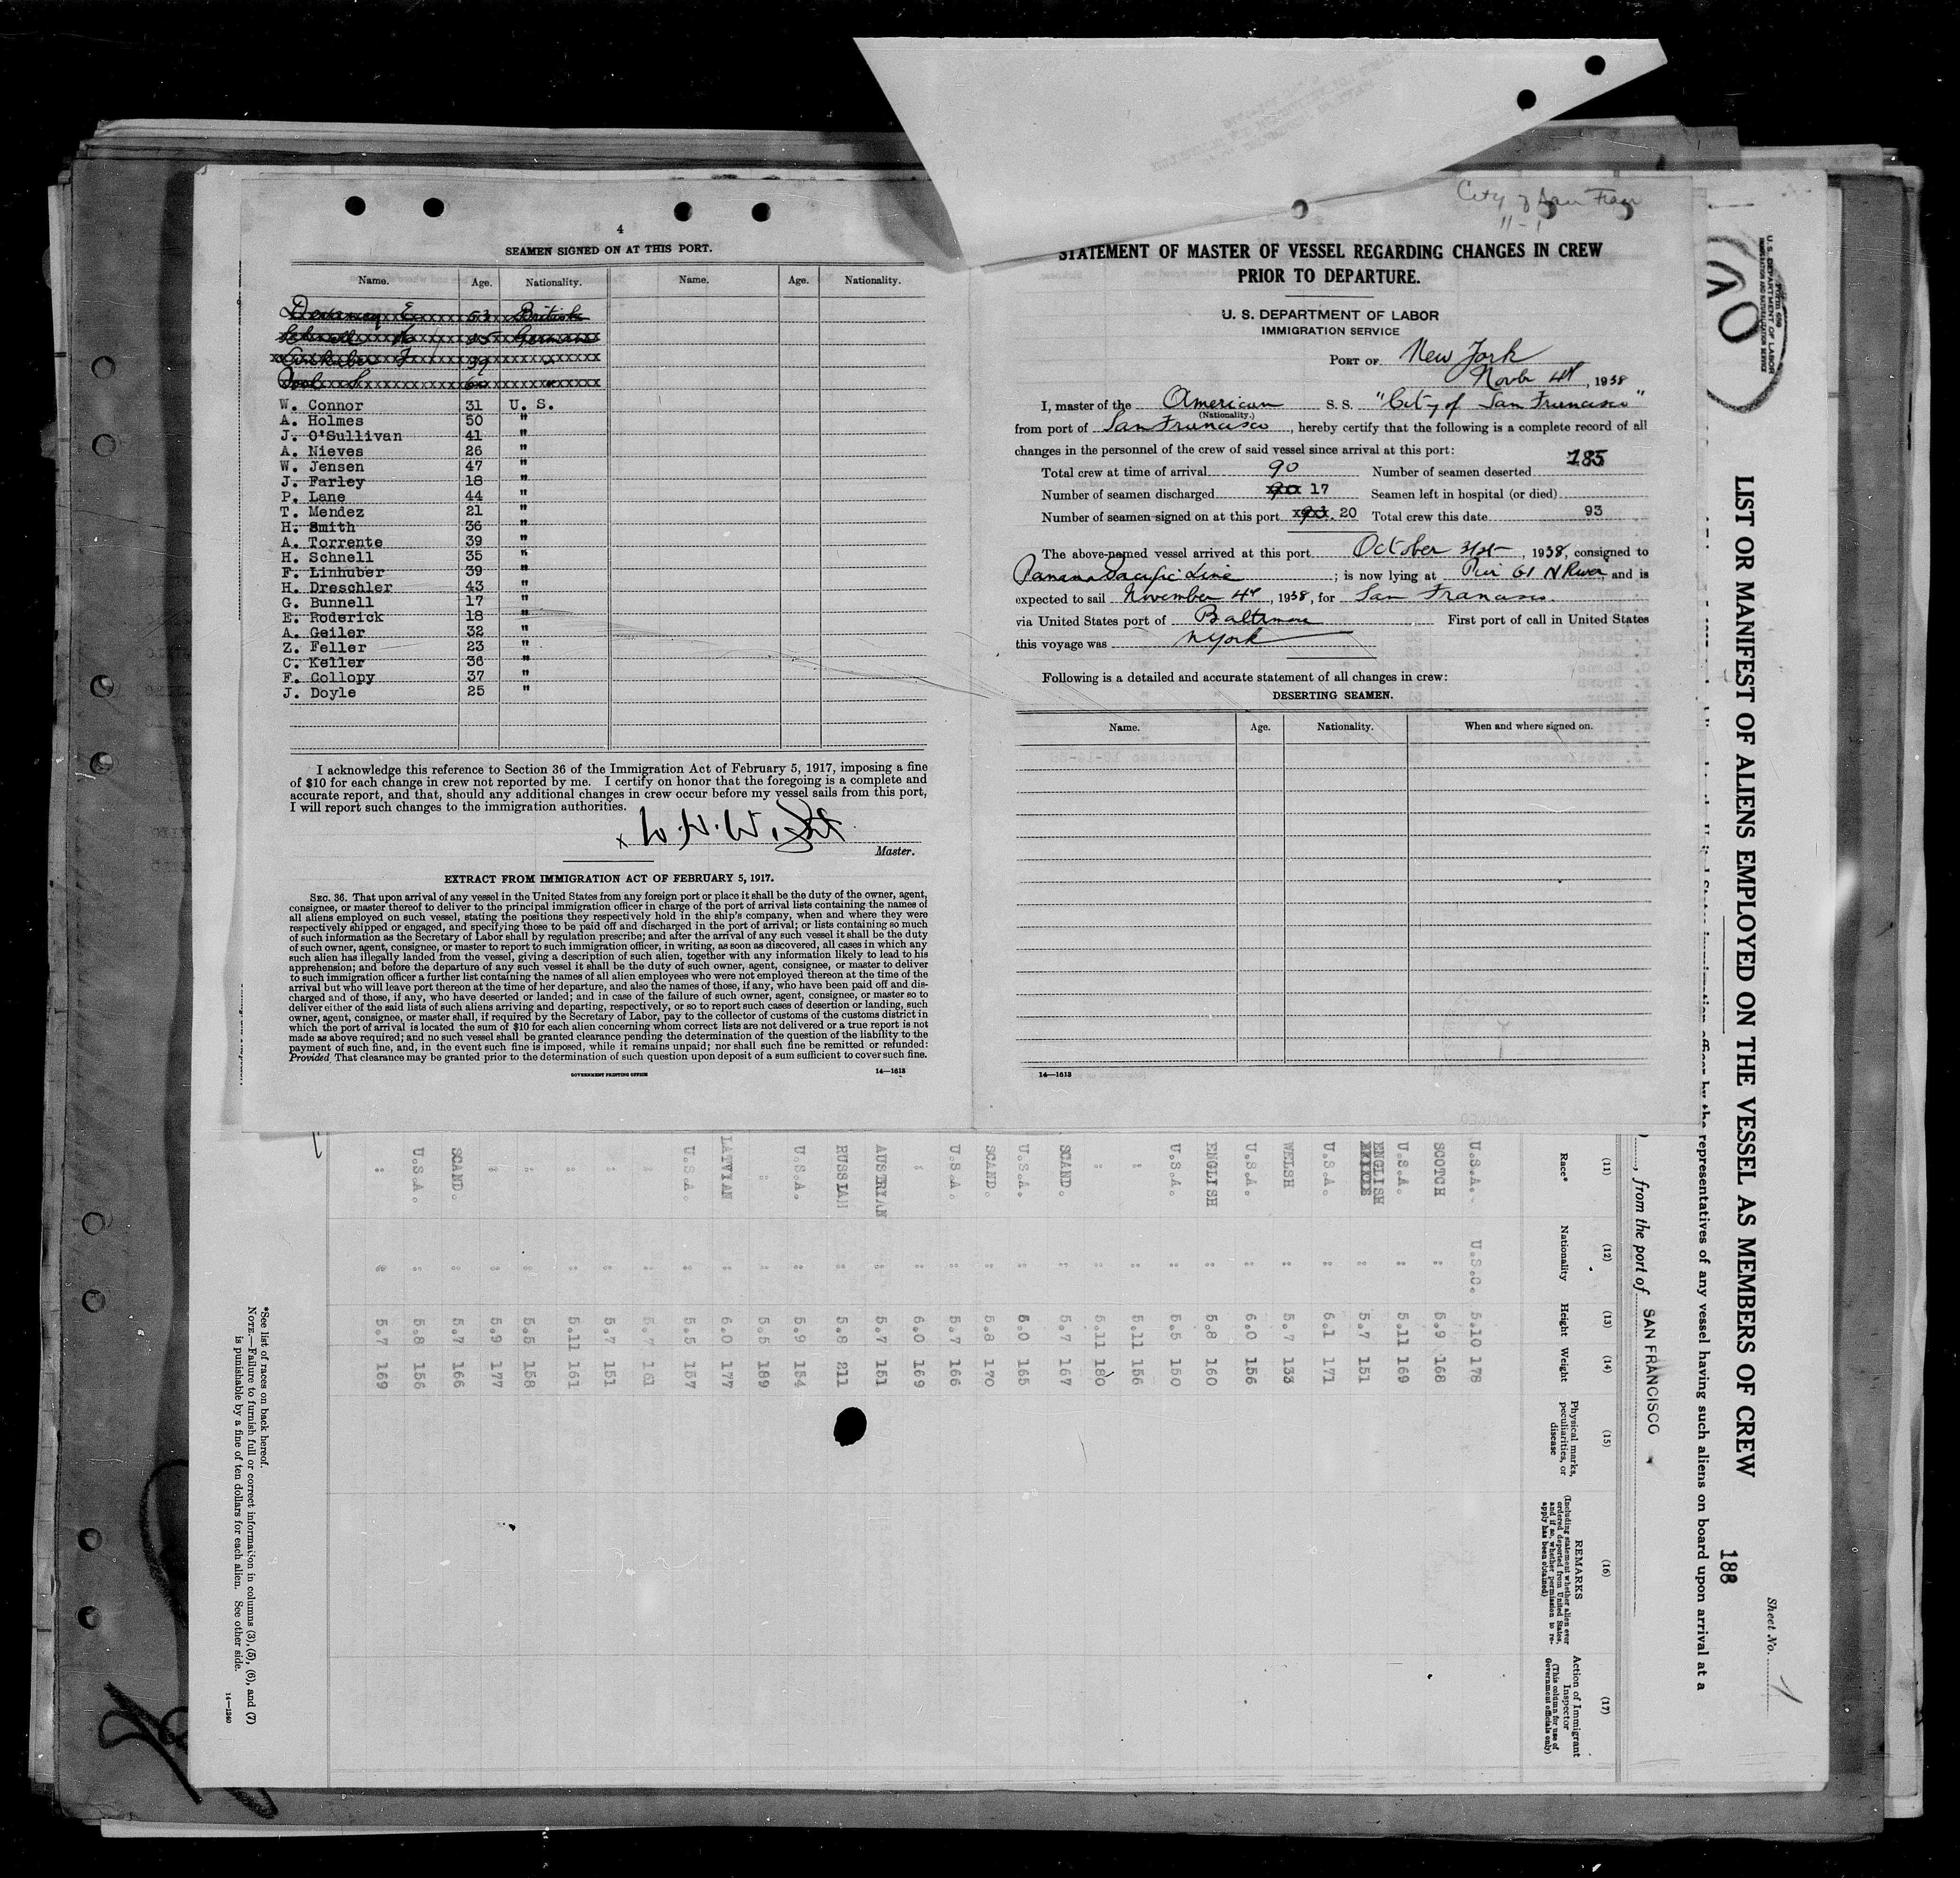 City of San Fran
11-1
4
SEAMEN SIGNED ON AT THIS PORT.
Name. Age. Nationality. Name. Age. Nationality.
E 53 British
Schnell 35 German
39 "
W. Connor 31 U. S.
A. Holmes 50 "
J. O'Sullivan 41 "
A. Nieves 26 "
W. Jensen 47 "
J. Farley 18 "
P. Lane 44 "
T. Mendez 21 "
H. Smith 36 "
A. Torrente 39 "
H. Schnell 35 "
F. Linhuber 39 "
H. Dreschler 43 "
G. Bunnell 17 "
E. Roderick 18 "
A. Geiler 32 "
Z. Feller 23 "
C. Keller 36 "
F. Collopy 37 "
J. Doyle 25 "
I acknowledge this reference to Section 36 of the Immigration Act of February 5, 1917, imposing a fine
of $10 for each change in crew not reported by me. I certify on honor that the foregoing is a complete and
accurate report, and that, should any additional changes in crew occur before my vessel sails from this port,
I will report such changes to the immigration authorities.
x W. H. Wight
Master.
EXTRACT FROM IMMIGRATION ACT OF FEBRUARY 5, 1917.
SEC. 36. That upon arrival of any vessel in the United States from any foreign port or place it shall be the duty of the owner, agent,
consignee, or master thereof to deliver to the principal immigration officer in charge of the port of arrival lists containing the names of
all aliens employed on such vessel, stating the positions they respectively hold in the ship's company, when and where they were
respectively shipped or engaged, and specifying those to be paid off and discharged in the port of arrival; or lists containing so much
of such information as the Secretary of Labor shall by regulation prescribe; and after the arrival of any such vessel it shall be the duty
of such owner, agent, consignee, or master to report to such immigration officer, in writing, as soon as discovered, all cases in which any
such alien has illegally landed from the vessel, giving a description of such alien, together with any information likely to lead to his
apprehension; and before the departure of any such vessel it shall be the duty of such owner, agent, consignee, or master to deliver
to such immigration officer a further list containing the names of all alien employees who were not employed thereon at the time of the
arrival but who will leave port thereon at the time of her departure, and also the names of those, if any, who have been paid off and dis-
charged and of those, if any, who have deserted or landed; and in case of the failure of such owner, agent, consignee, or master so to
deliver either of the said lists of such aliens arriving and departing, respectively, or so to report such cases of desertion or landing, such
owner, agent, consignee, or master shall, if required by the Secretary of Labor, pay to the collector of customs of the customs district in
which the port of arrival is located the sum of $10 for each alien concerning whom correct lists are not delivered or a true report is not
made as above required; and no such vessel shall be granted clearance pending the determination of the question of the liability to the
payment of such fine, and, in the event such fine is imposed, while it remains unpaid; nor shall such fine be remitted or refunded:
Provided That clearance may be granted prior to the determination of such question upon deposit of a sum sufficient to cover such fine.
GOVERNMENT PRINTING OFFICE 14—1613
STATEMENT OF MASTER OF VESSEL REGARDING CHANGES IN CREW
PRIOR TO DEPARTURE.
U. S. DEPARTMENT OF LABOR
IMMIGRATION SERVICE
PORT OF New York
Novbr 4th, 1938
I, master of the American S. S. "City of San Francisco"
(Nationality.)
from port of San Francisco, hereby certify that the following is a complete record of all
changes in the personnel of the crew of said vessel since arrival at this port:
185
Total crew at time of arrival 90 Number of seamen deserted
Number of seamen discharged 90 17 Seamen left in hospital (or died)
Number of seamen signed on at this port 93. 20 Total crew this date 93
The above-named vessel arrived at this port October 31st, 1938, consigned to
Panama Pacific Line; is now lying at Pier 61 N River, and is
expected to sail November 4th, 1938, for San Francisco.
via United States port of Baltimore First port of call in United States
this voyage was N York
Following is a detailed and accurate statement of all changes in crew:
DESERTING SEAMEN.
Name. Age. Nationality. When and where signed on.
14—1613
U. S. DEPARTMENT OF LABOR
IMMIGRATION AND NATURALIZATION SERVICE
Form 680
Sheet No. 1
LIST OR MANIFEST OF ALIENS EMPLOYED ON THE VESSEL AS MEMBERS OF CREW
188
by the representatives of any vessel having such aliens on board upon arrival at a
, from the port of SAN FRANCISCO
(11) (12) (13) (14) (15) (16) (17)
Race* Nationality Height Weight Physical marks, peculiarities, or disease
REMARKS
(Including statement whether alien ever ordered deported from United States, and if so, whether permission to re-apply has been obtained)
Action of Immigrant Inspector
(This column for use of Government officials only)
U.S.A. U.S.C. 5.10 178
SCOTCH " 5.9 168
U.S.A. " 5.11 169
ENGLISH " 5.7 151
U.S.A. " 6.1 171
WELSH " 5.7 133
U.S.A. " 6.0 156
ENGLISH " 5.8 160
U.S.A. " 5.5 150
" " 5.11 156
" " 5.11 180
SCAND. " 5.7 167
U.S.A. " 6.0 165
SCAND. " 5.8 170
U.S.A. " 5.7 166
" " 6.0 169
AUSTRIAN " 5.7 151
RUSSIAN " 5.8 211
U.S.A. " 5.9 154
" " 5.5 189
LATVIAN " 6.0 177
U.S.A. " 5.5 157
" " 5.7 161
" " 5.7 151
" " 5.11 161
" " 5.5 158
" " 5.9 177
SCAND. " 5.7 166
U.S.A. " 5.8 156
" " 5.7 169
*See list of races on back hereof.
NOTE.—Failure to furnish full or correct information in columns (3), (5), (6), and (7)
is punishable by a fine of ten dollars for each alien. See other side.
14—1240